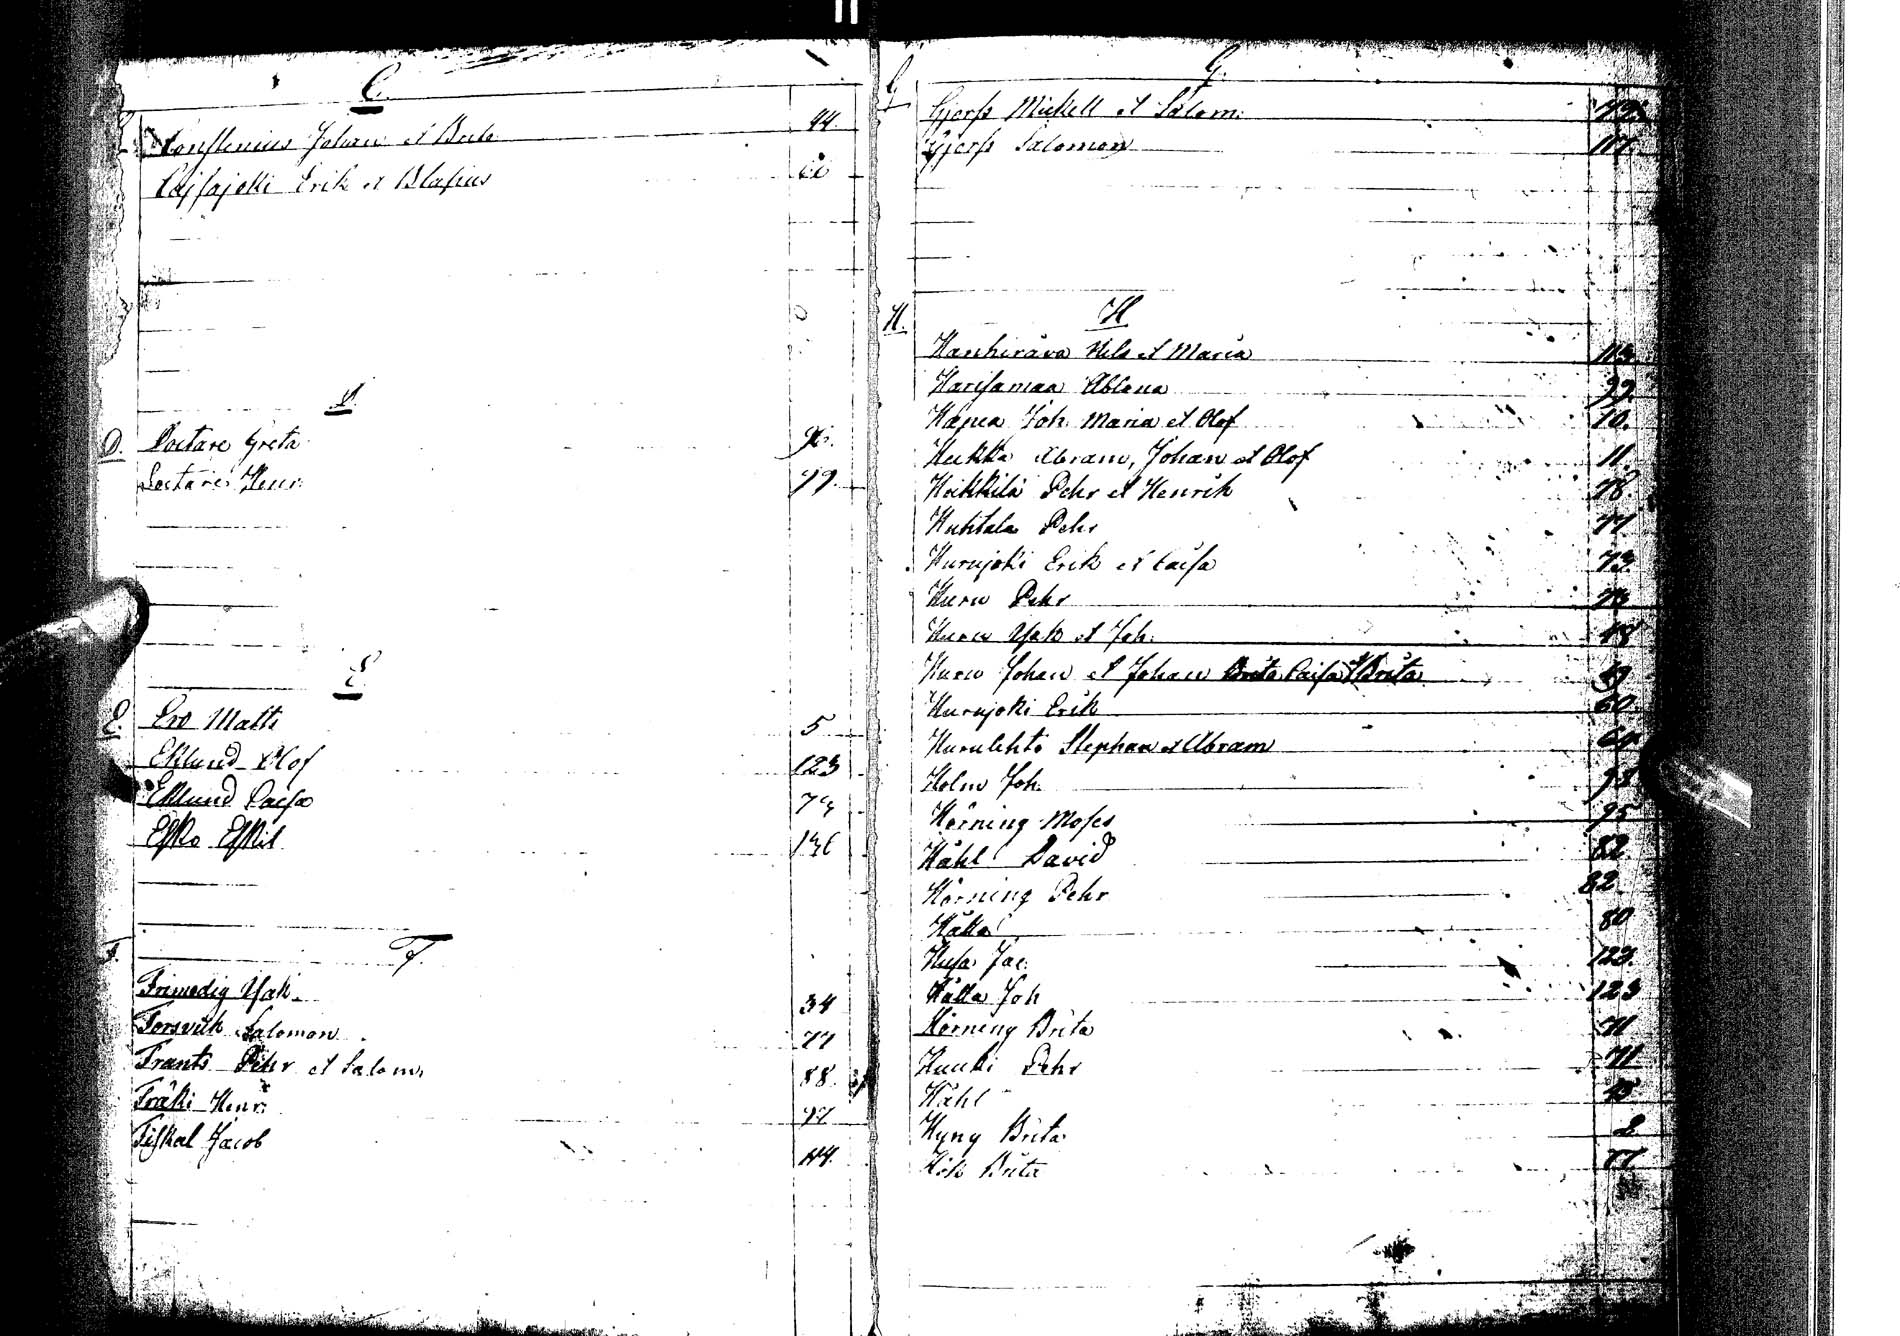 C.
Consstenius Johan et Brita 44.
Erik et Blasius
D
D. Doctare Greta
Henr. 99.
E
E. Ero Matts 5
Eklund Olof 123
Eklund Caisa
Esko Eskil 136
F.
F.
Frimodig Isak 34
Forsvik Salomon 77
Frants Pehr et Salom. 88.
Fräki Henr.
Fiskal Jacob 114.
G G.
Gjerss Mickell et Salom.
Gjerss Salomon 117.
H. H
Kanhirova Nils et Maria 113.
Harisamaa Ablona 99.
Hapea Joh. Maria et Olof 10.
Heikka Abram, Johan et Olof 11.
Heikkilä Pehr et Henrik 78.
Huhtala Pehr 77
Hurujoki Erik et Caisa 73.
Huru Pehr 73
Huru Isak et Joh.
Huru Johan et Johan Caisa et Brita
Hurujoki Erik 60.
Hurulehto Stephan et Abram
Holm Joh. 98.
Hörning Moses 95
Håhl David 82.
Hörning Pehr 82
Hätta 80
Husa Jac. 123.
Hätta Joh 123
Hörning Brita 71
Huuki Pehr 71
Håhl 45
Hyny Brita 2
Hök Brita 77